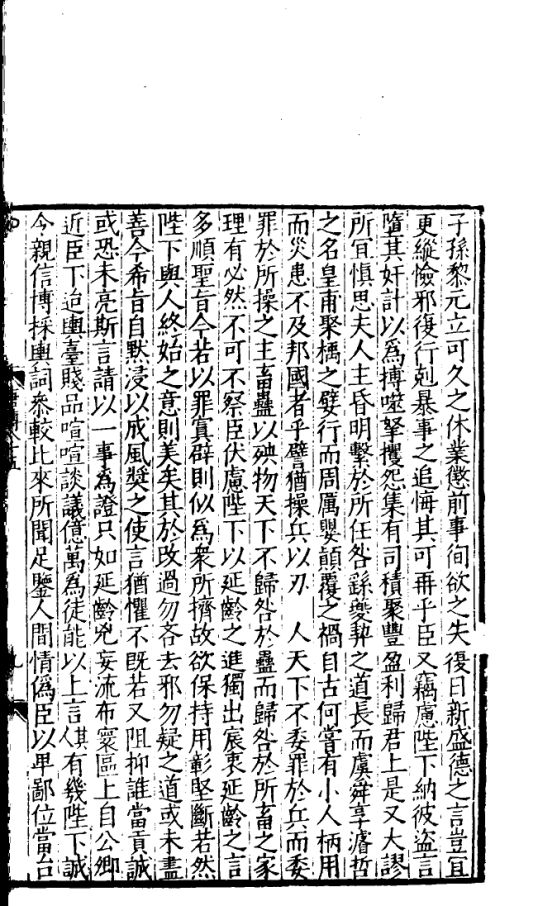 子孫黎元立可久之休業懲前事徇欲之失復日新盛德之言豈宜
更縱憸邪復行剋暴事之追悔其可再乎臣又竊慮陛下納彼盜言
墮其奸計以為搏噬拏攫怨集有司積聚豐盈利歸君上是又大謬
所宜慎思夫人主昏明繫於所任咎繇夔契之道長而虞舜享濬哲
之名皇甫聚楀之嬖行而周厲嬰顛覆之禍自古何嘗有小人柄用
而災患不及邦國者乎譬猶操兵以刃 人天下不委罪於兵而委
罪於所操之主畜蠱以殃物天下不歸咎於蠱而歸咎於所畜之家
理有必然不可不察臣伏慮陛下以延齡之進獨出宸衷延齡之言
多順聖旨今若以罪寘辟則似為衆所擠故欲保持用彰堅斷若然
陛下與人終始之意則美矣其於改過勿吝去邪勿疑之道或未盡
善今希旨自默浸以成風奬之使言猶懼不既若又阻抑誰當貢誠
或恐未亮斯言請以一事為證只如延齡兇妄流布寰區上自公卿
近臣下迨輿臺賤品喧喧談議億萬為徒能以上言其有幾陛下誠
今親信博採輿詞叅較比來所聞足鑒人間情偽臣以卑鄙位當台